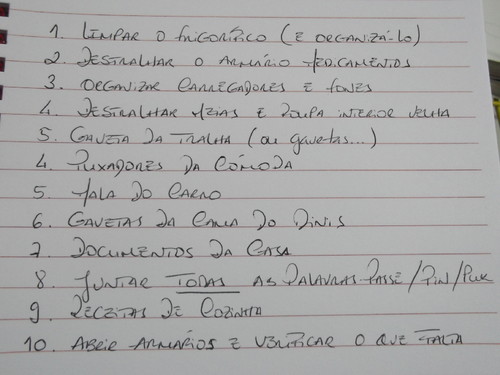 1. LIMPAR O FRIGORÍFICO (E ORGANIZÁ-LO)
2. DESTRALHAR O ARMÁRIO MEDICAMENTOS
3. ORGANIZAR CARREGADORES E FONES
4. DESTRALHAR MEIAS E ROUPA INTERIOR VELHA
5. GAVETA DA TRALHA (OU gavetas...)
4. PUXADORES DA CÓMODA
5. MALA DO CARRO
6. GAVETAS DA CAMA DO DINIS
7. DOCUMENTOS DA CASA
8. JUNTAR TODAS AS PALAVRAS-PASSE/PIN/PUK
9. RECEITAS DE COZINHA
10. ABRIR ARMÁRIOS E VERIFICAR O QUE FALTA